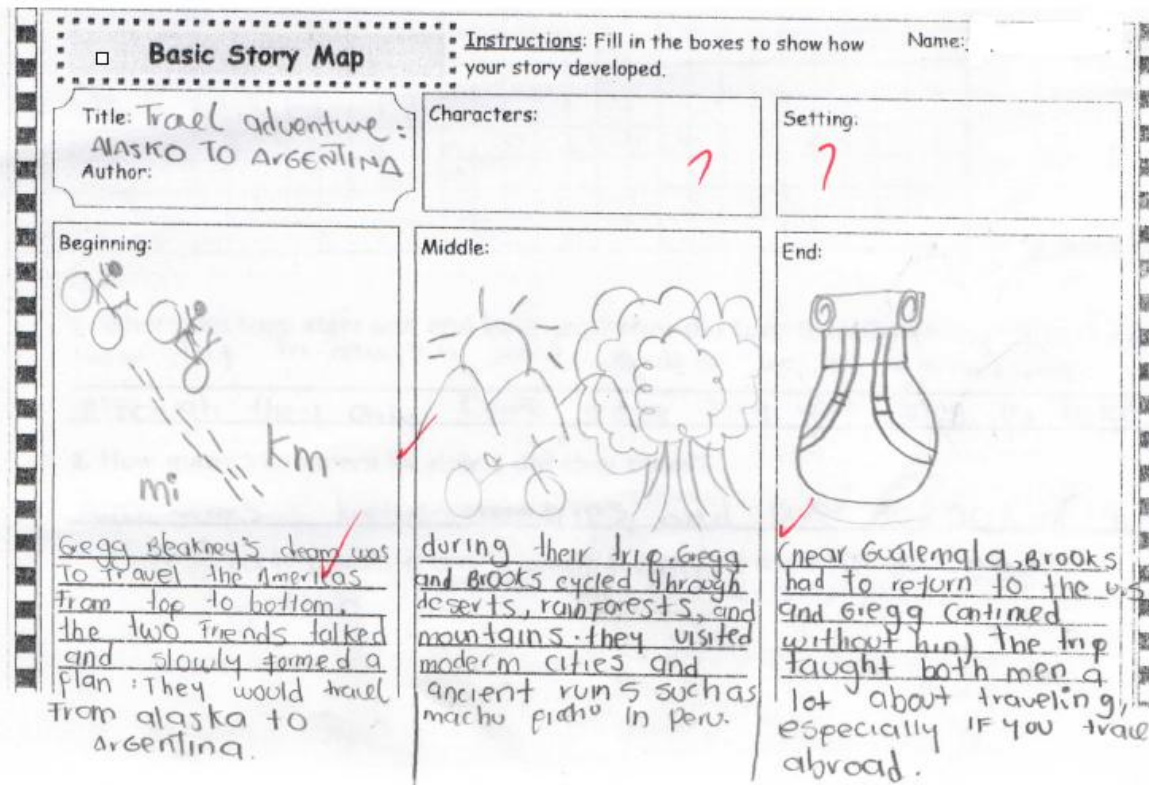 Basic Story Map
Instructions: Fill in the boxes to show how
your story developed.
Name:
Title: Trael adventure:
ALASKO TO ARGENTINA
Author:
Characters:
?
Setting:
?
Beginning:
km
mi
Gregg Bleakney's dream was
To travel the Americas
From top to bottom.
the two friends talked
and slowly formed a
plan: They would travel
From alaska to
Argentina.
Middle:
during their trip, Gregg
and Brooks cycled through
deserts, rainforests, and
mountains. they visited
moderm cities and
ancient ruins such as
machu pichu in Peru.
End:
(near Guatemala, Brooks
had to return to the U.S
and Gregg continued
without him) the trip
taught both men a
lot about traveling,
especially IF you trael
abroad.